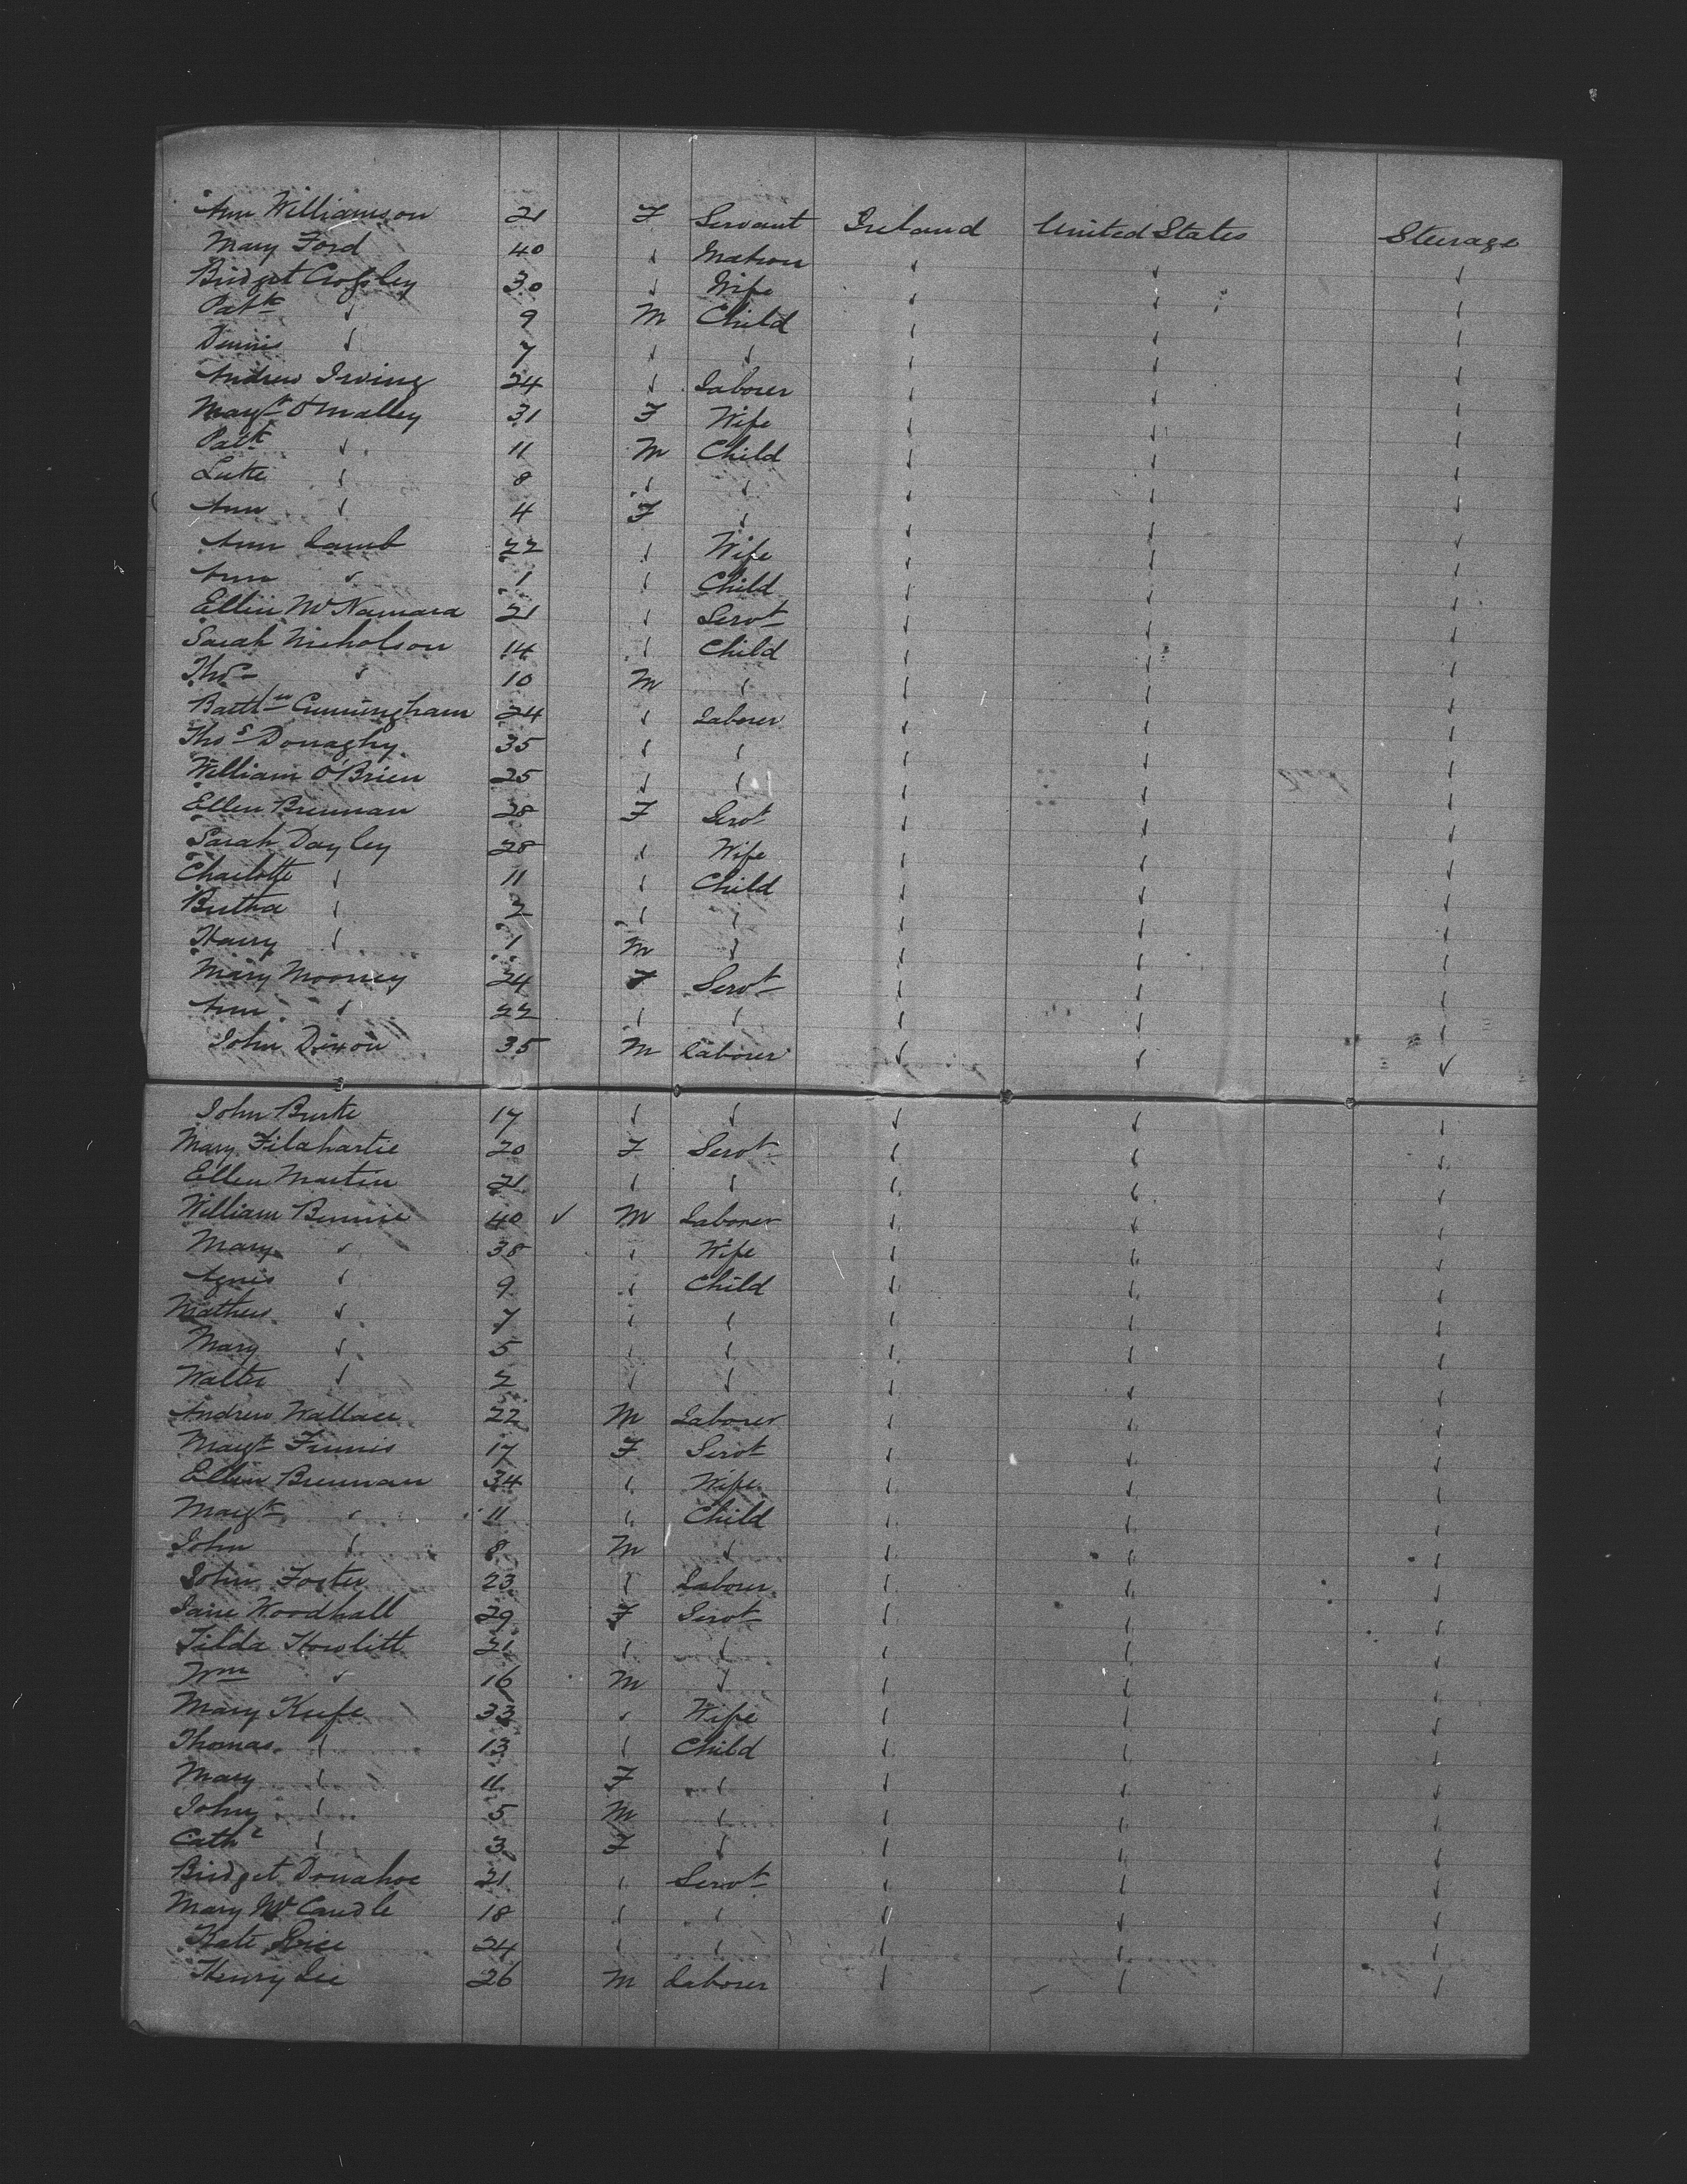 Ann Williamson 21 F Servant Ireland United States Steerage
Mary Ford 40 " Matron " " "
Bridget Crossley 30 " Wife " " "
Patk " 9 M Child " " "
Dennis " 7 " " " " "
Andrew Irving 24 " Laborer " " "
Margt O'Malley 31 F Wife " " "
Patk " 11 M Child " " "
Luke " 8 " " " " "
Ann " 4 F " " " "
Ann Lamb 22 " Wife " " "
Ann " 1 " Child " " "
Ellen McNamara 21 " Servt " " "
Sarah Nicholson 14 " Child " " "
Thos " 10 M " " " "
Barthw Cunningham 24 " Laborer " " "
Thos Donaghy 35 " " " " "
William O'Brien 25 " " " " "
Ellen Brennan 28 F Servt " " "
Sarah Dayley 28 " Wife " " "
Charlotte " 11 " Child " " "
Bertha " 2 " " " " "
Harry " 1 M " " " "
Mary Mooney 24 F Servt " " "
Ann " 22 " " " " "
John Dixon 35 M Laborer " " "
John Burke 17 " " " " "
Mary 20 F Servt " " "
Ellen Martin 21 " " " " "
William Binnie 40 ✓ M Laborer " " "
Mary " 38 " Wife " " "
Agnes " 9 " Child " " "
Mathew " 7 " " " " "
Mary " 5 " " " " "
Walter " 2 " " " " "
Andrew Wallace 22 M Laborer " " "
Margt 17 F Servt " " "
Ellen Brennan 34 " Wife " " "
Margt " 11 " Child " " "
John " 8 M " " " "
John Foster 23 " Laborer " " "
Jane Woodhall 29 F Servt " " "
Tilda Howlitt 21 " " " " "
Wm " 16 M " " " "
Mary Keefe 33 " Wife " " "
Thomas " 13 " Child " " "
Mary " 11 F " " " "
John " 5 M " " " "
Cathe " 3 F " " " "
Bridget Donahoe 21 " Servt " " "
Mary McCardle 18 " " " " "
Kate Rice 24 " " " " "
Henry Lee 26 M Laborer " " "